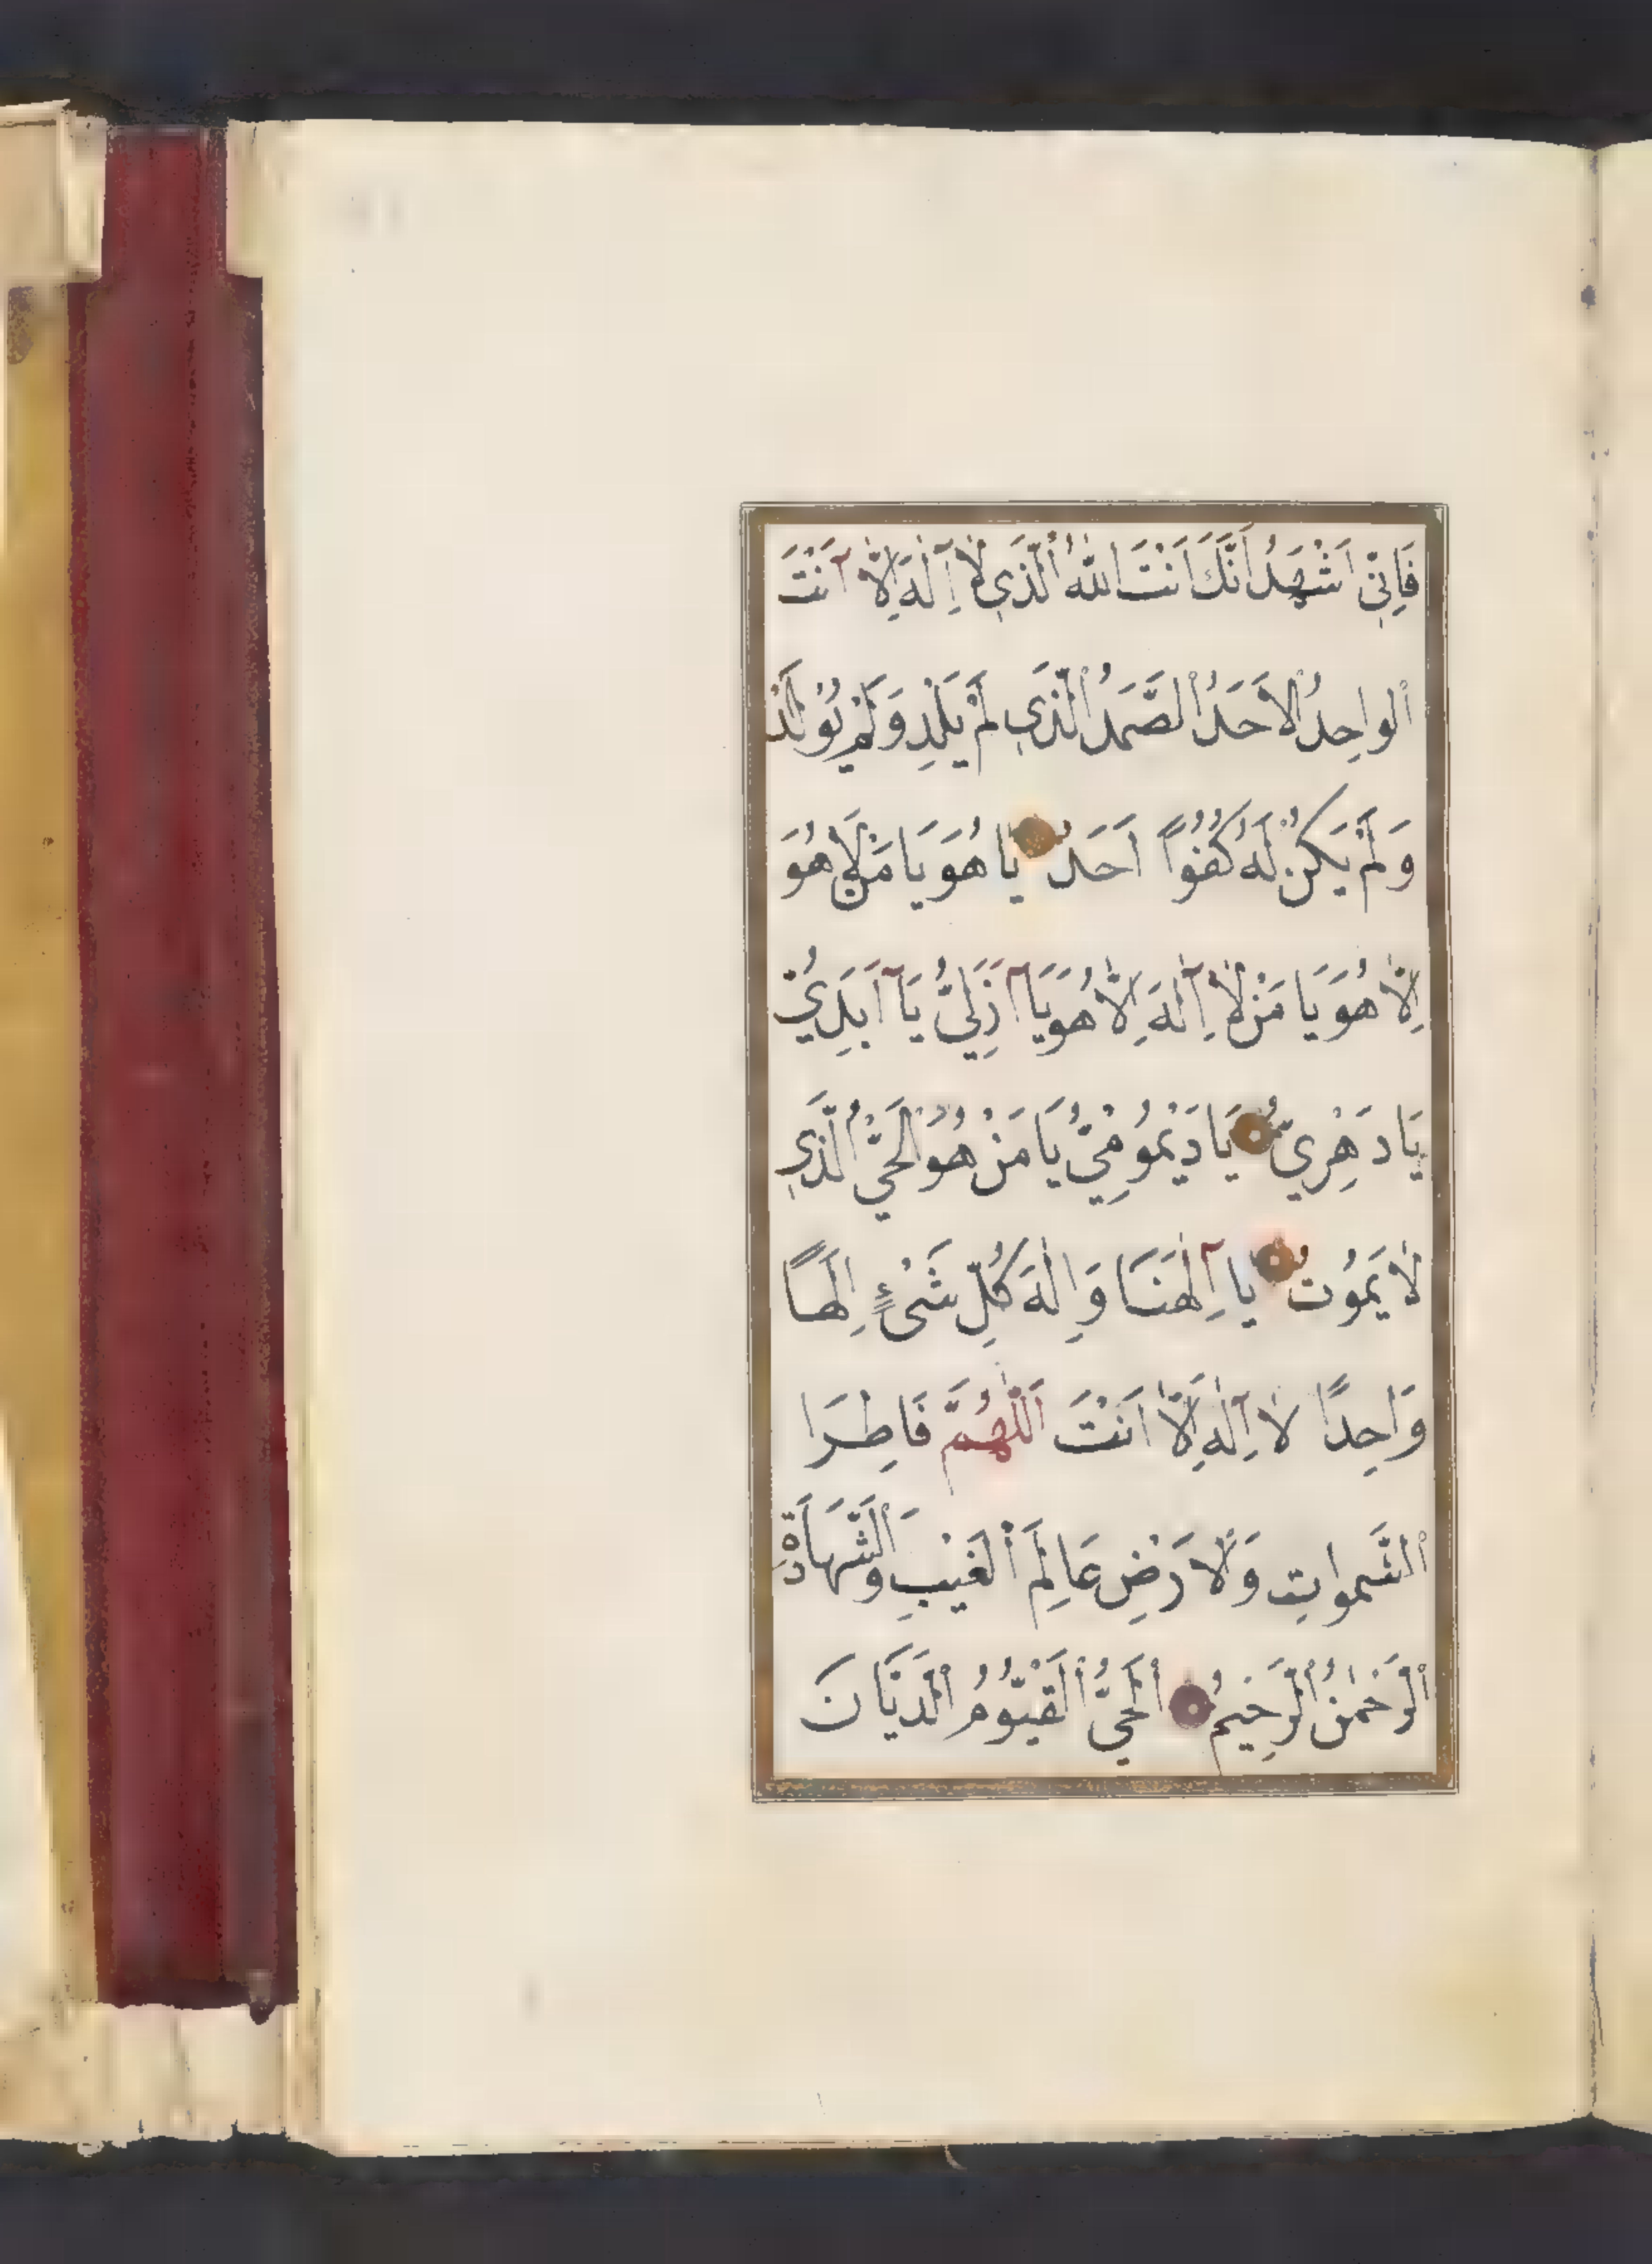 فَاِنِّي اَشْهَدُ اَنَّكَ اَنْتَ اللّٰهُ الَّذِي لَا اِلٰهَ اِلَّا اَنْتَ
الواحِدُ الْاَحَدُ الصَّمَدُ الَّذِي لَمْ يَلِدْ وَلَمْ يُولَدْ
وَلَمْ يَكُنْ لَهُ كُفُواً اَحَدٌ يا هُوَ يَا مَنْ لَا هُوَ
اِلَّا هُوَ يَا مَنْ لَا اِلٰهَ اِلَّا هُوَ يَا اَزَلِيُّ يَا اَبَدِيُّ
يَا دَهْرِيُّ يَا دَيْمُومِيُّ يَا مَنْ هُوَ الْحَيُّ الَّذِي
لَا يَمُوتُ يا اِلٰهَنَا وَاِلٰهَ كُلِّ شَيْءٍ اِلٰهًا
وَاحِدًا لَا اِلٰهَ اِلَّا اَنْتَ اَللّٰهُمَّ فَاطِرَ ا
السَّمواتِ وَالْاَرْضِ عَالِمَ الْغَيْبِ وَالشَّهَادَةِ
الرَّحْمٰنُ الرَّحِيمُ الْحَيُّ الْقَيُّومُ الدَّيَّانَ